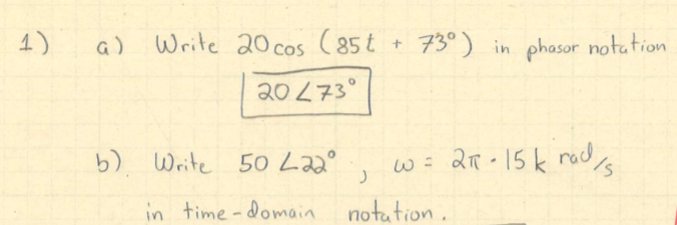 1) a) Write 20 cos (85t + 73°) in phasor notation
20∠73°
b) Write 50 ∠22°, ω = 2π · 15 k rad/s
in time-domain notation.